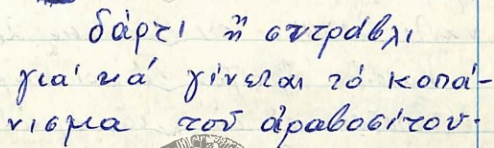 δάρτι ἤ στράβλι
γιά νά γίνεται τό κοπά-
νισμα τοῦ ἀραβοσίτου.